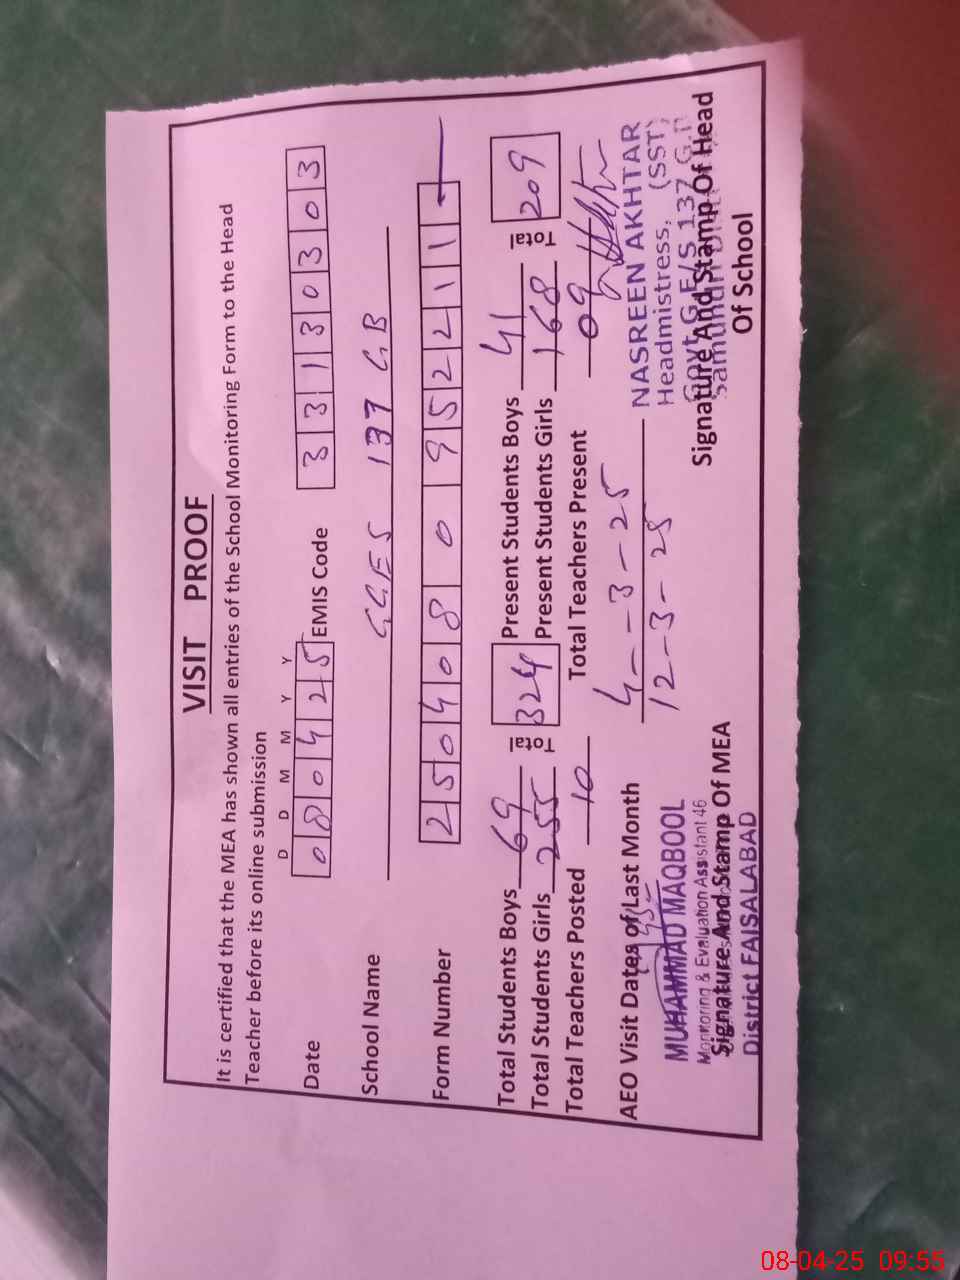 VISIT PROOF
It is certified that the MEA has shown all entries of the School Monitoring Form to the Head
Teacher before its online submission
D D M M Y Y
Date 080425 EMIS Code 33130303
School Name GGES 137 GB
Form Number 2504080952211
Total Students Boys 69 Total 324 Present Students Boys 41 Total 209
Total Students Girls 255 Present Students Girls 168
Total Teachers Posted 10 Total Teachers Present 09
AEO Visit Dates of Last Month 4-3-25
12-3-25
MUHAMMAD MAQBOOL
Monitoring & Evaluation Assistant 46
Signature And Stamp Of MEA
District FAISALABAD
NASREEN AKHTAR
Headmistress, (SST)
Govt G.E/S 137 G.
Signature And Stamp Of Head
Of School
08-04-25 09:55